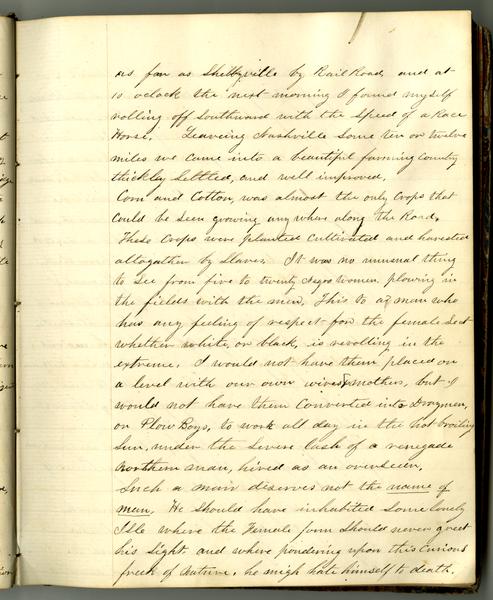 as far as Shelbyville by Rail Road, and at
10 oclock the next morning I found myself
rolling off Southward with the Speed of a Race
Horse. Leaveing Nashville Some ten or twelve
miles we came into a beautiful farming Country
thickley Settled, and well improved.
Corn and Cotton, was almost the only Crops that
Could be Seen growing any where along the Road.
These Crops were planted Cultivated and harvested
altogather by Slaves. It was no unusual thing
to See from five to twenty Negro Women, plowing in
the fields with the men, This to a man who
has any feeling of respect for the female Sect
whether white, or black, is revolting in the
extreme. I would not have them placed on
a level with our own wives & mothers, but I
would not have them Converted into Draymen,
or Plow Boys, to work all day in the hot broiling
Sun, under the Severe lash of a renegade
Northern man, hired as an overseeer.
Such a man deserves not the name of
man, He Should have inhabited Some lonely
Isle where the Female form Should never greet
his Sight and where pondering upon this Curious
freek of Nature, he migh hate himself to death.